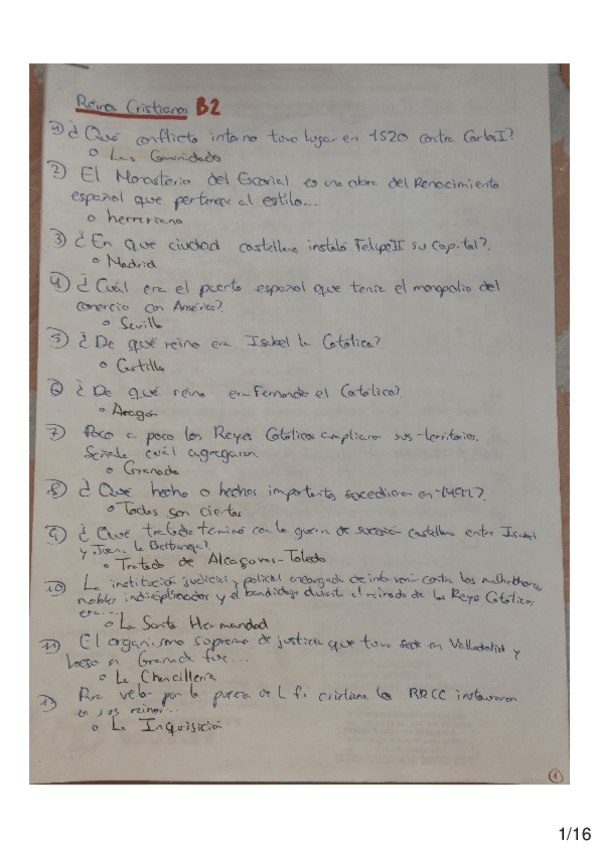 Reinos Cristianos B2
1) ¿Qué conflicto interno tuvo lugar en 1520 contra Carlos I?
o Las Comunidades
2) El Monasterio del Escorial es una obra del Renacimiento
español que pertenece al estilo....
o herreriano
3) ¿En qué ciudad castellana instaló Felipe II su capital?
o Madrid
4) ¿Cuál era el puerto español que tenía el monopolio del
comercio con América?
o Sevilla
5) ¿De qué reino era Isabel la Católica?
o Castilla
6) ¿De qué reino era Fernando el Católico?
o Aragón
7) Poco a poco los Reyes Católicos ampliaron sus territorios.
Señale cuál agregaron.
o Granada
8) ¿Qué hecho o hechos importantes sucedieron en 1492?
o Todas son ciertas
9) ¿Qué tratado terminó con la guerra de sucesión castellana entre Isabel
y Juana la Beltraneja?
o Tratado de Alcaçovas-Toledo
10) La institución judicial y policial encargada de intervenir contra los malhechores,
nobles indisciplinados y el bandidaje durante el reinado de los Reyes Católicos
era...
o La Santa Hermandad
11) El organismo supremo de justicia que tuvo sede en Valladolid y
luego en Granada fue...
o La Chancillería
Para velar por la pureza de la fe cristiana los RRCC instauraron
en sus reinos...
o La Inquisición
1
1/16